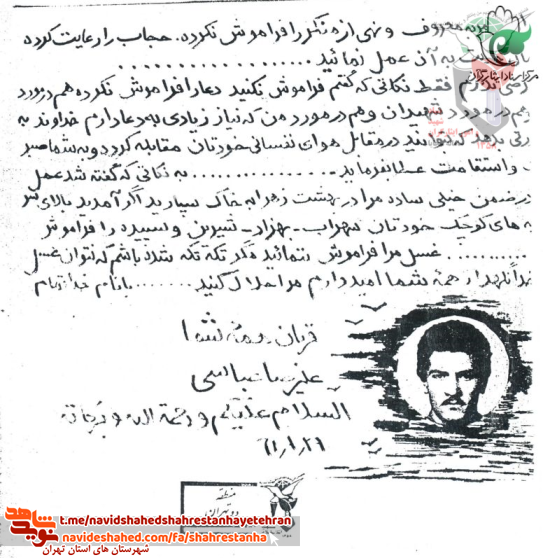 امر به معروف و نهی از منکر را فراموش نکرده. حجاب را رعایت کرده
به آن عمل نمائید
عرضی ندارم فقط نکاتی که گفتم فراموش نکنید دعا را فراموش نکرده هم در مورد
هم در مورد شهیدان و هم در مورد من که نیاز زیادی به دعا دارم خداوند به
بدهد که بتوانید در مقابل هوای نفسانی خودتان مقابله کرده و به شما صبر
و استقامت عطا بفرماید ............... به نکاتی که گفته شد عمل
در ضمن خیلی ساده مرا در بهشت زهرا به خاک بسپارید اگر آمدید بالای سر
به های کوچک خودتان سهراب - بهزاد - شیرین و سپیده را فراموش
.......... غسل مرا فراموش ننمائید مگر تکه تکه شده باشم که نتوان غسل
خدانگهدار همه شما امیدوارم مرا حلال کنید .......
قربان همه شما
علیرضا عباسی
السلام علیکم و رحمة الله و برکاته
منطقه
تهران
نوید شاهد
t.me/navidshahedshahrestanhayetehran
navideshahed.com/fa/shahrestanha
شهرستان های استان تهران